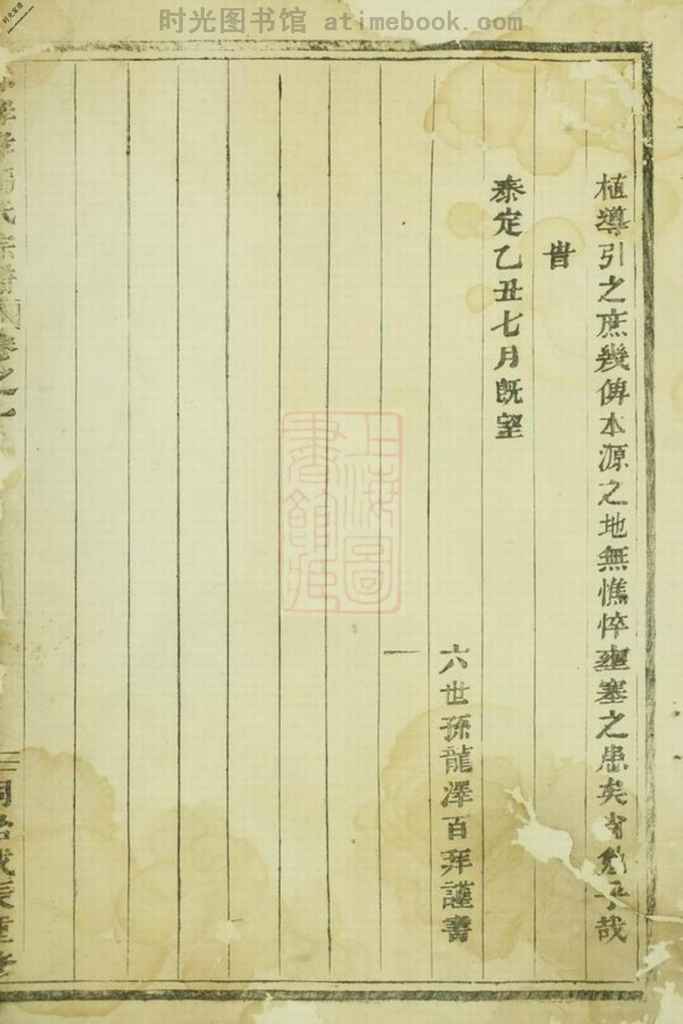 时光图书馆 atimebook.com
植導引之庶幾俾本源之地無憔悴壅塞之患矣哉
旹
泰定乙丑七月既望
六世孫龍澤百拜謹書
上海圖
書館藏
氏宗譜卷之
同治戊辰重修